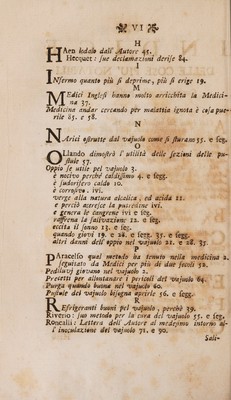 VI
H
HAen lodato dall' Autore 45.
Hecquet: sue declamazioni derise 84.
I
INfermo quanto più si deprime, più si erige 19.
M
MEdici Inglesi hanno molto arricchita la Medicina 37.
Medicina andar cercando per malattia ignota è cosa puerile 85. e 58.
N
NArici ostrutte dal vajuolo come si sturano 55. e seg.
O
OLlando dimostrò l'utilità delle sezioni delle pustule 57.
Oppio se utile pel vajuolo 3.
è nocivo perchè caldissimo 4. e segg.
è sudorifero caldo 10.
è corrosivo. ivi.
verge alla natura alcolica, ed acida 11.
e perciò accresce la putredine ivi.
e genera le cangrene ivi e seg.
raffrena la salivazione 12. e seg.
eccita il sonno 13. e seg.
quando giovi 19. e 28. e segg. 35. e segg.
altri danni dell' oppio nel vajuolo 21. e 28. 35.
P
PAracelso qual metodo ha tenuto nella medicina 2.
seguitato da Medici per più di due secoli 52.
Pediluvj giovano nel vajuolo 2.
Precetti per allontanare i pericoli del vajuolo 64.
Purga quando buona nel vajuolo 60.
Pustule del vajuolo bisogna aprirle 56. e segg.
R
REfrigeranti buoni pel vajuolo, perchè 39.
Riverio: suo metodo per la cura del vajuolo 55. e seg.
Roncalli: Lettera dell' Autore al medesimo intorno all' inoculazione del vajuolo 71. e 90.
Sali-